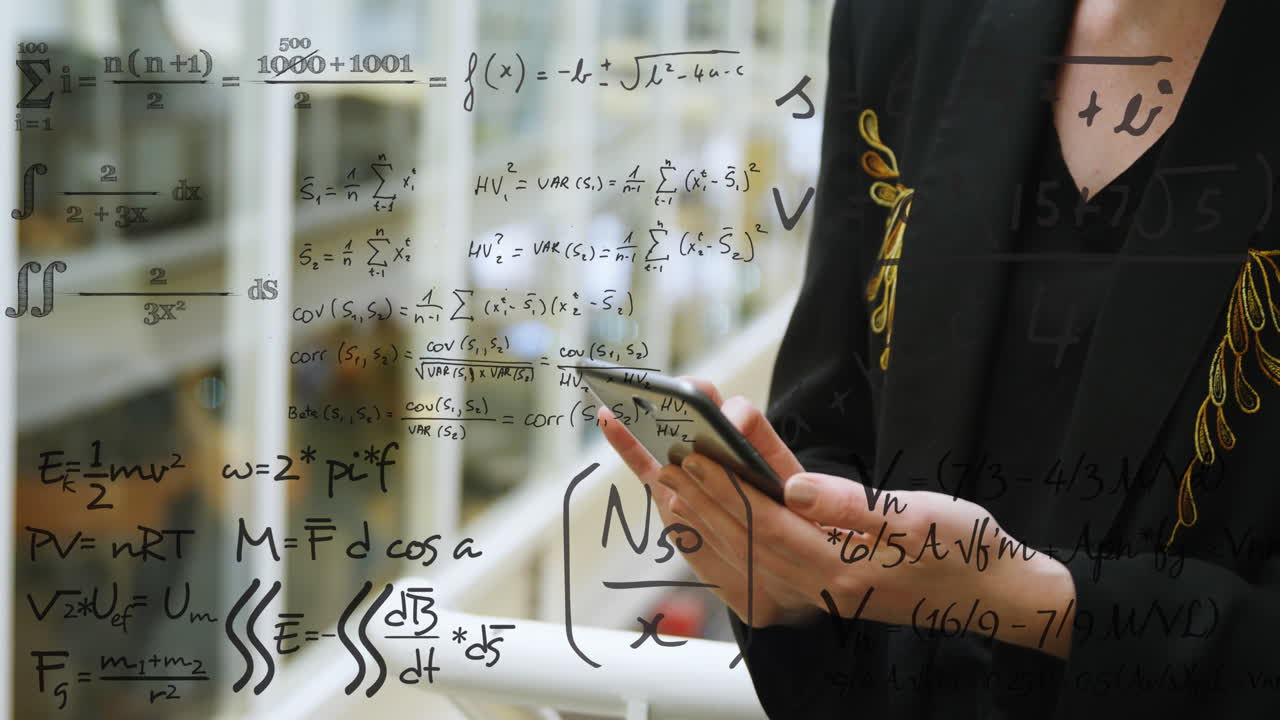 100
∑ i = n(n+1)/2 = 1000+1001/2 = f(x) = -b ± √b²-4a-c
i=1
500
∫ 2/2+3x dx
∬ 2/3x² dS
S̄₁ = 1/n n∑t-1 x₁ᵗ
HV₁² = VAR(S₁) = 1/n-1 n∑t-1 (x₁ᵗ-S̄₁)²
S̄₂ = 1/n n∑t-1 x₂ᵗ
HV₂² = VAR(S₂) = 1/n-1 n∑t-1 (x₂ᵗ-S̄₂)²
COV(S₁,S₂) = 1/n-1 ∑ (x₁ᵗ-S̄₁)(x₂ᵗ-S̄₂)
corr (S₁,S₂) = cov(S₁,S₂)/√VAR(S₁)xVAR(S₂) = cov(S₁,S₂)/HV₂ x HV₂
Beta(S₁,S₂) = cov(S₁,S₂)/VAR(S₂) = corr(S₁,S₂) · HV₁/HV₂
Eₖ=1/2mv² ω=2*pi*f
PV=nRT M=F d cos a
√2*Uef=Um ∫∫ E=-∫∫ dB/dt *ds
Fg=m₁+m₂/r²
(N50/x)
S
+b
V
15+7√5
4
Vn=(7/3-4/3
*6/5 A √f'm+Apn*f
=(16/9-7/9 M/VL)